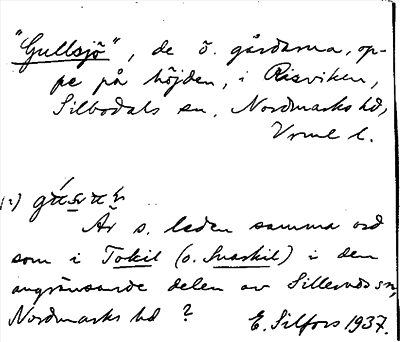 "Gullsjö", de ö. gårdarna, op-
pe på höjden, i Risviken,
Silbodals sn, Nordmarks hd,
Vrml l.
Är s. leden samma ord
som i Tokil (o. Svaskil) i den
angränsande delen av Sillerudssn,
Nordmarks hd ? E. Silfors 1937.